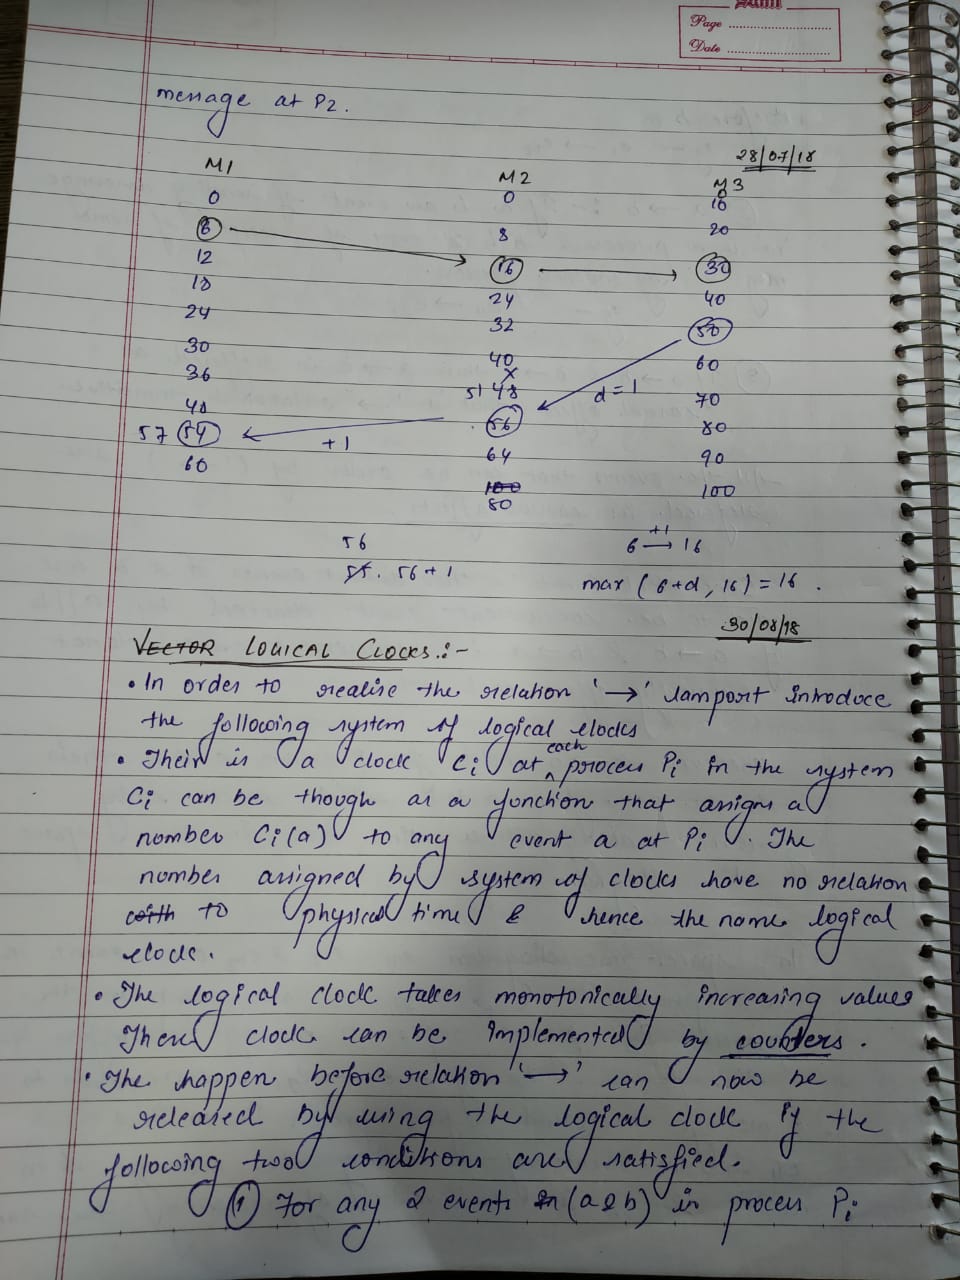 Page
Date
message at P2.
28/07/18
M1 M2 M3
0 0 0
10
6 8 20
12 16 30
18 24 40
24 32 50
30 40 60
36 x d=1
51 48 70
48 56 80
57 54 +1
60 64 90
100 100
80
56 6 +1 → 16
55. 56+1 max (6+d, 16) = 16.
30/08/18
VECTOR LOGICAL CLOCKS :-
• In order to realise the relation '→' lamport introduce
the following system of logical clocks
• Their is a clock Ci at each process Pi in the system
Ci can be though as a function that assigns a
number Ci(a) to any event a at Pi. The
number assigned by system of clocks have no relation
with to physical time & hence the name logical
clock.
• The logical clock takes monotonically increasing values
These clock can be implemented by counters.
• The happen before relation '→' can now be
released by using the logical clock if the
following two conditions are satisfied.
(1) For any 2 events in (a & b) in process Pi